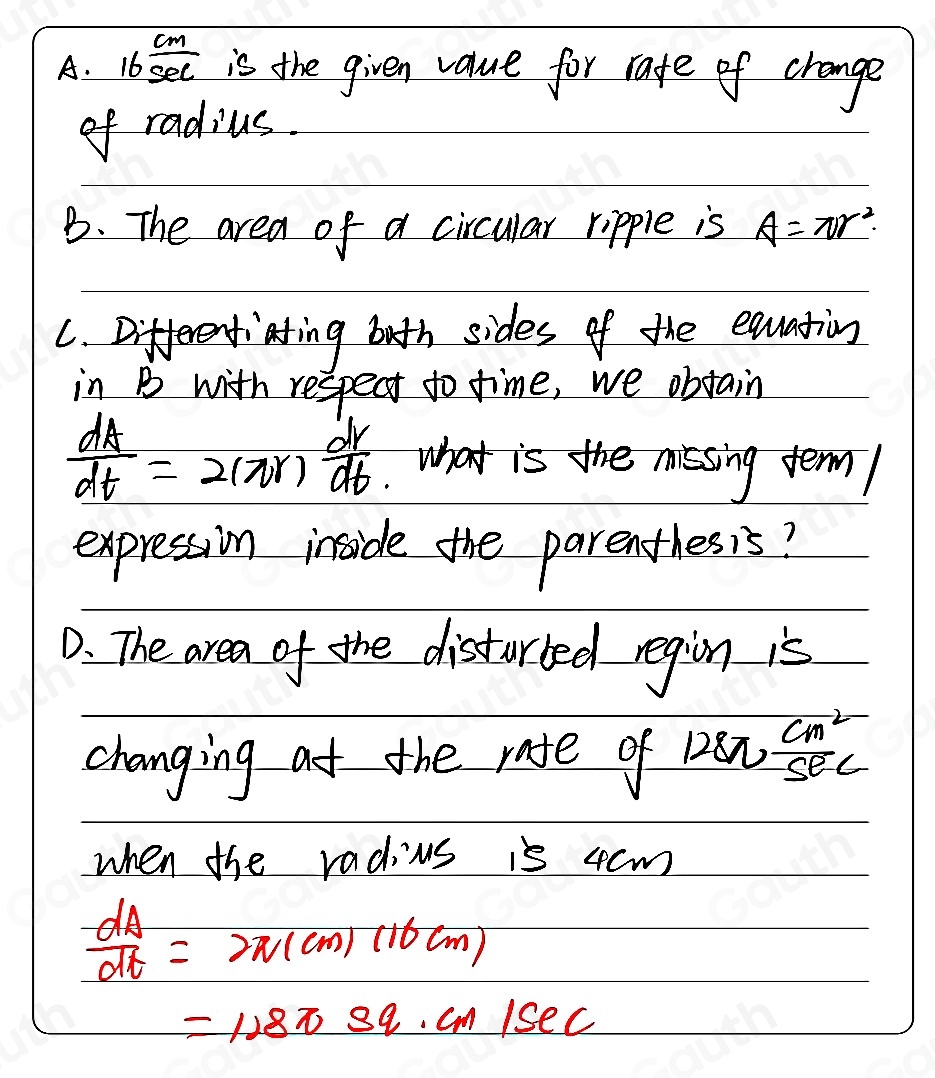 A. 16 cm/sec is the given value for rate of change
of radius.
B. The area of a circular ripple is A = πr².
C. Differentiating both sides of the equation
in B with respect to time, we obtain
dA/dt = 2(πr) dr/dt. what is the missing term/
expression inside the parenthesis?
D. The area of the disturbed region is
changing at the rate of 128π cm²/sec
when the radius is 4cm
dA/dt = 2π(cm)(16cm)
= 128π sq.cm/sec